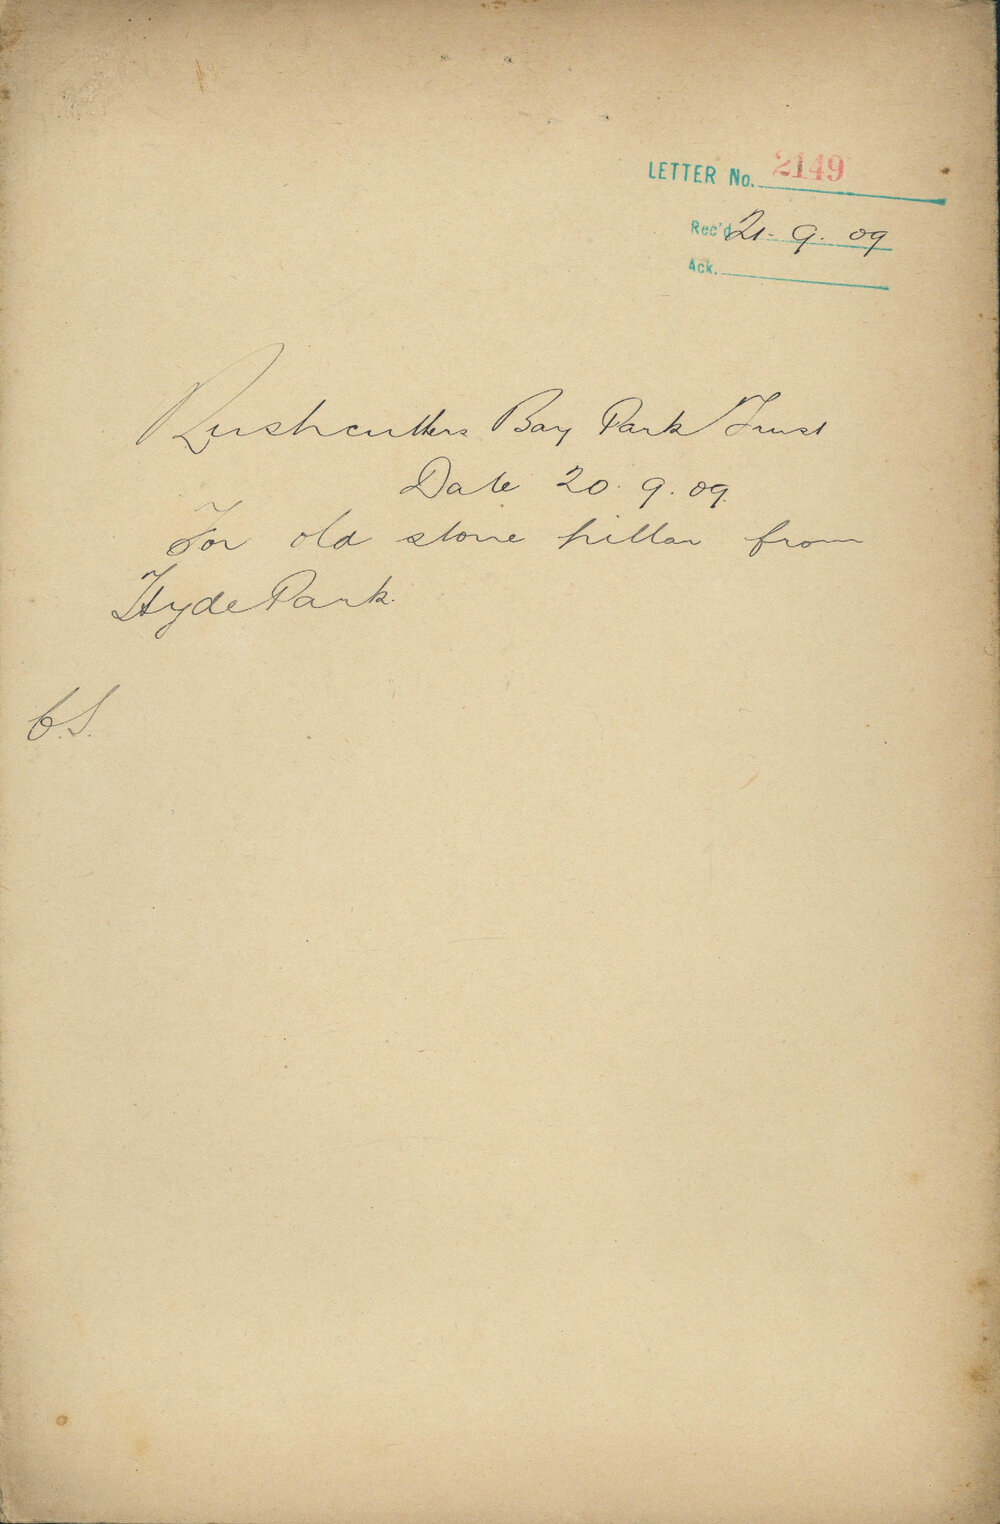 LETTER No. 2149
Rec'd 21. 9. 09
Ack.
Rushcutters Bay Park Trust
Date 20. 9. 09.
For old stone pillar from
Hyde Park.
C.S.